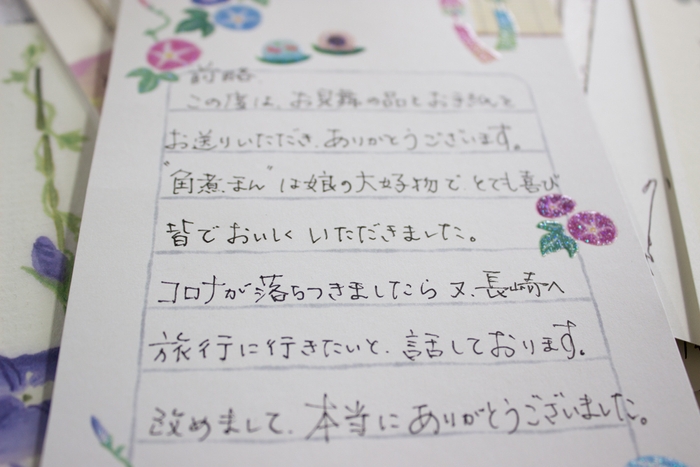 前略
この度は、お見舞の品とお手紙と
お送りいただき、ありがとうございます。
"角煮まん"は娘の大好物で、とても喜び
皆でおいしくいただきました。
コロナが落ちつきましたら又、長崎へ
旅行に行きたいと、話しております。
改めまして、本当にありがとうございました。